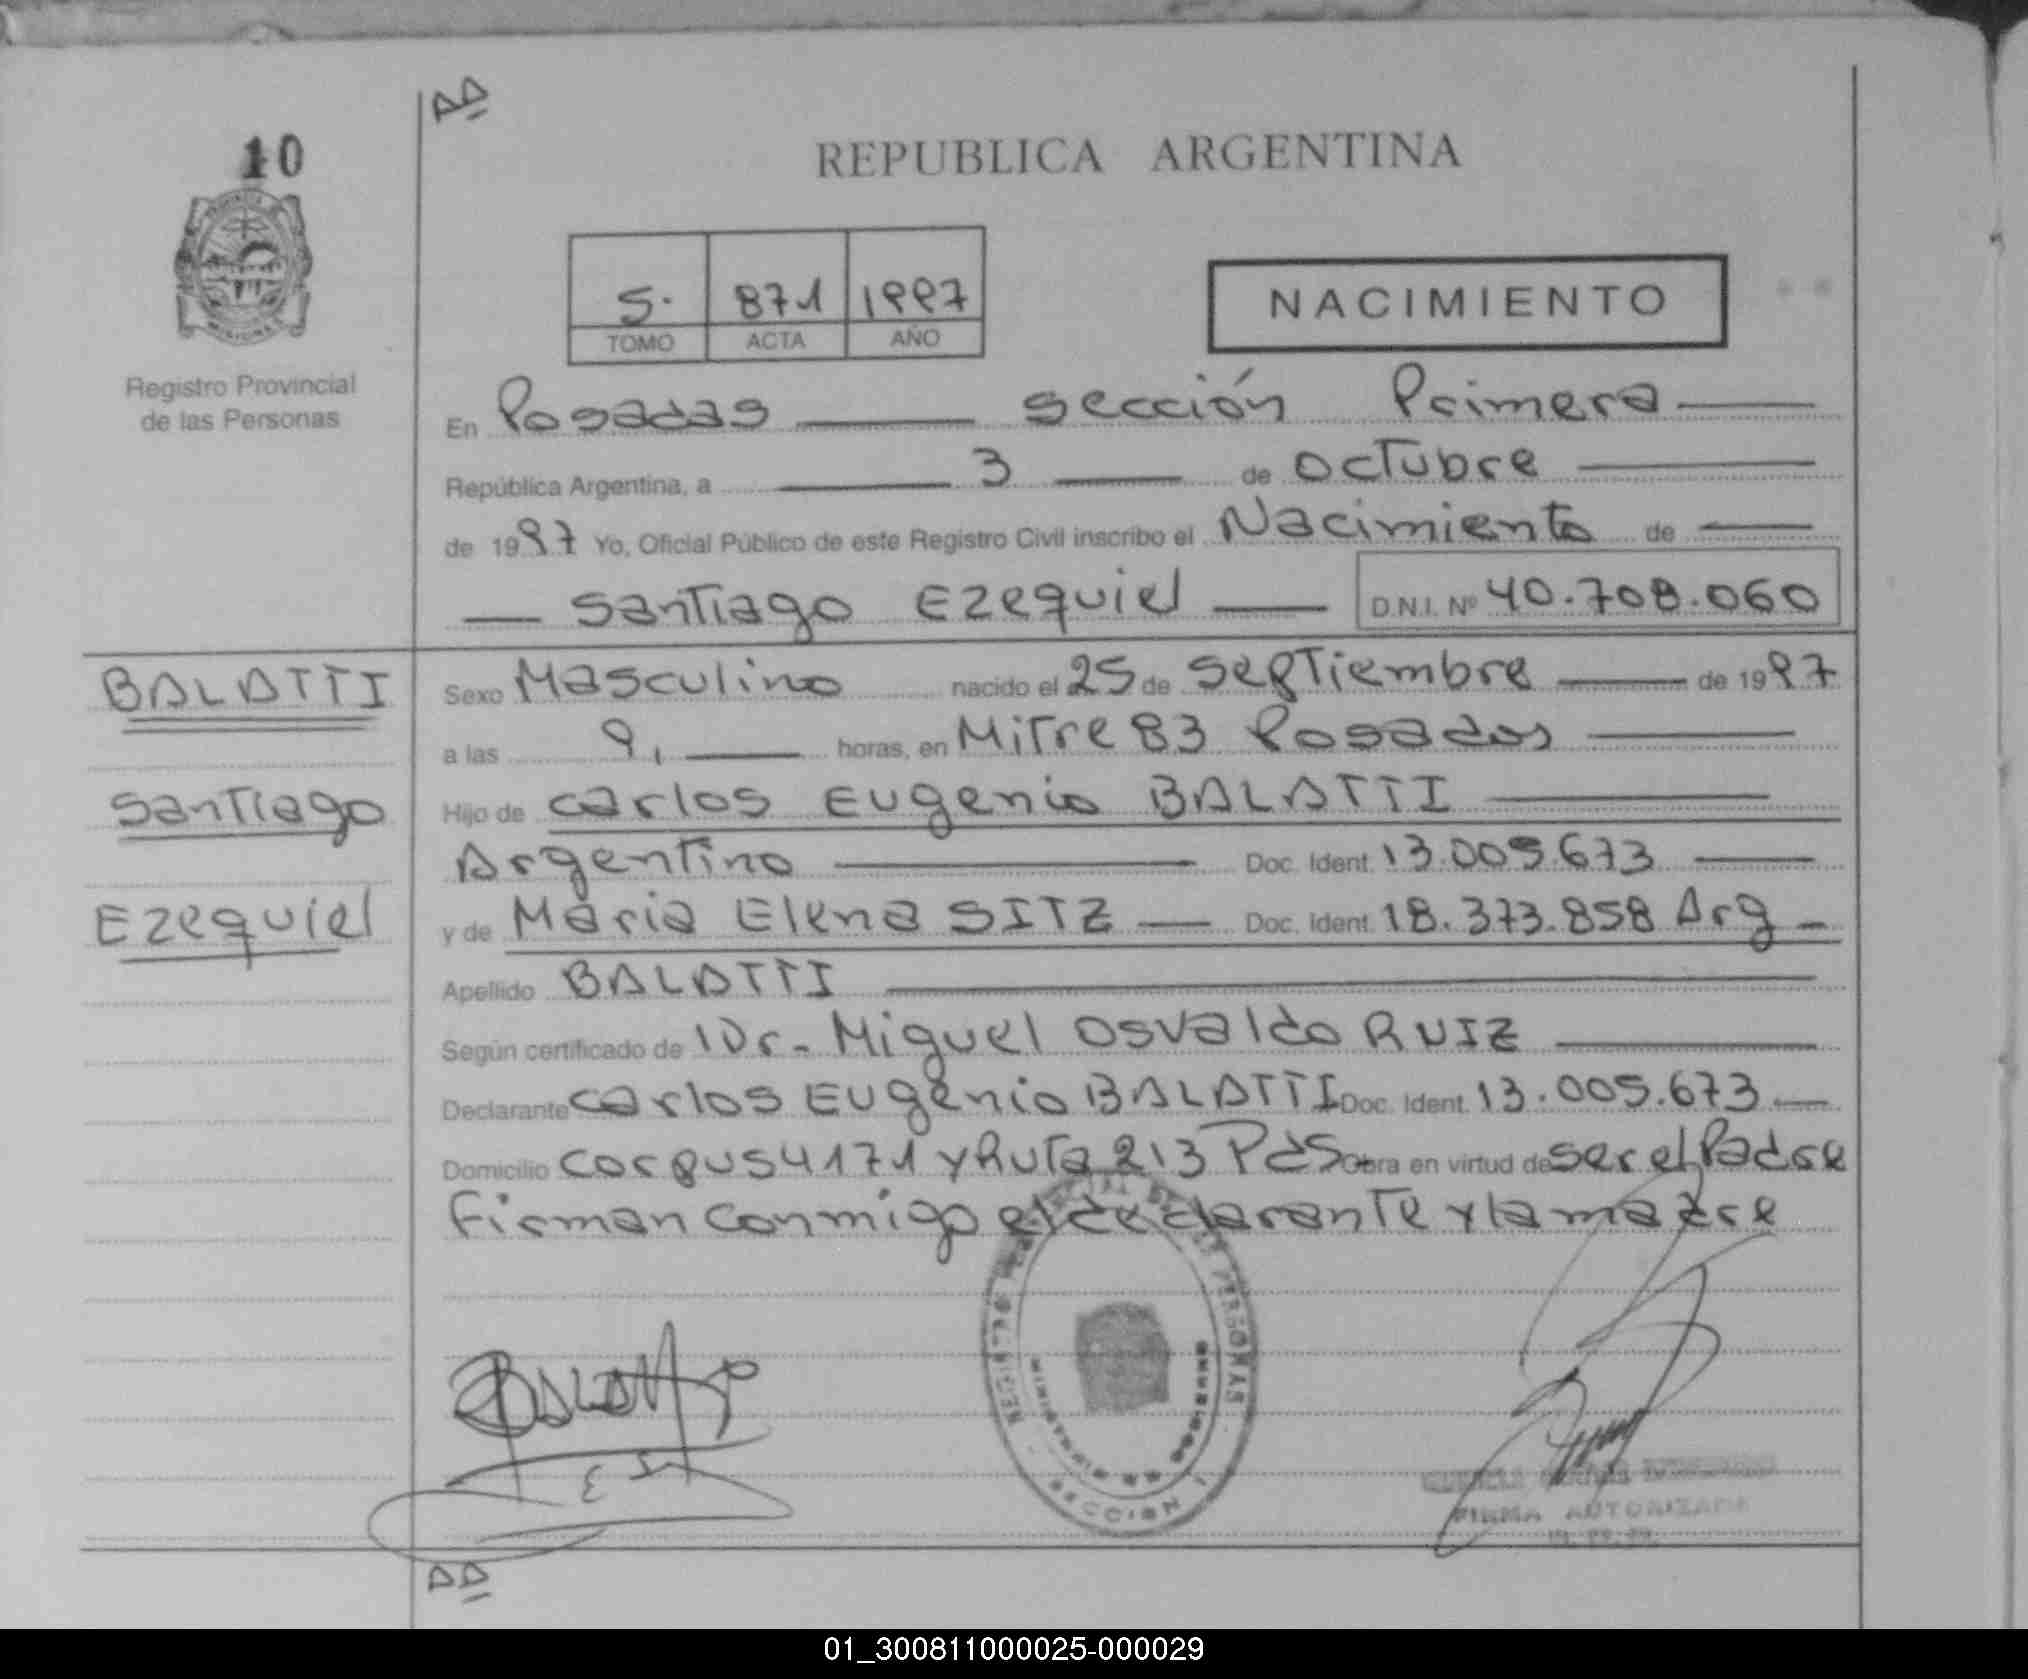 AA
10
REPUBLICA ARGENTINA
5. 871 1997
TOMO ACTA AÑO
NACIMIENTO
MISIONES
Registro Provincial
de las Personas
En Posadas sección Primera
República Argentina, a 3 de octubre
de 1997 Yo, Oficial Público de este Registro Civil inscribo el Nacimiento de
Santiago Ezequiel D.N.I. Nº 40.708.060
BALATTI
Santiago
Ezequiel
Sexo Masculino nacido el 25 de septiembre de 1997
a las 9, horas, en Mitre 83 Posadas
Hijo de Carlos Eugenio BALATTI
Argentino Doc. Ident. 13.005.673
y de Maria Elena SITZ Doc. Ident. 18.373.858 Arg
Apellido BALATTI
Según certificado de Dr. Miguel Osvaldo RUIZ
Declarante Carlos Eugenio BALATTI Doc. Ident. 13.005.673
Domicilio Corpus 4171 y Ruta 213 Pds Obra en virtud de ser el Padre
Firman conmigo el declarante y la madre
PERSONAS
SECCION 1
FIRMA AUTORIZADA
AA
01_300811000025-000029